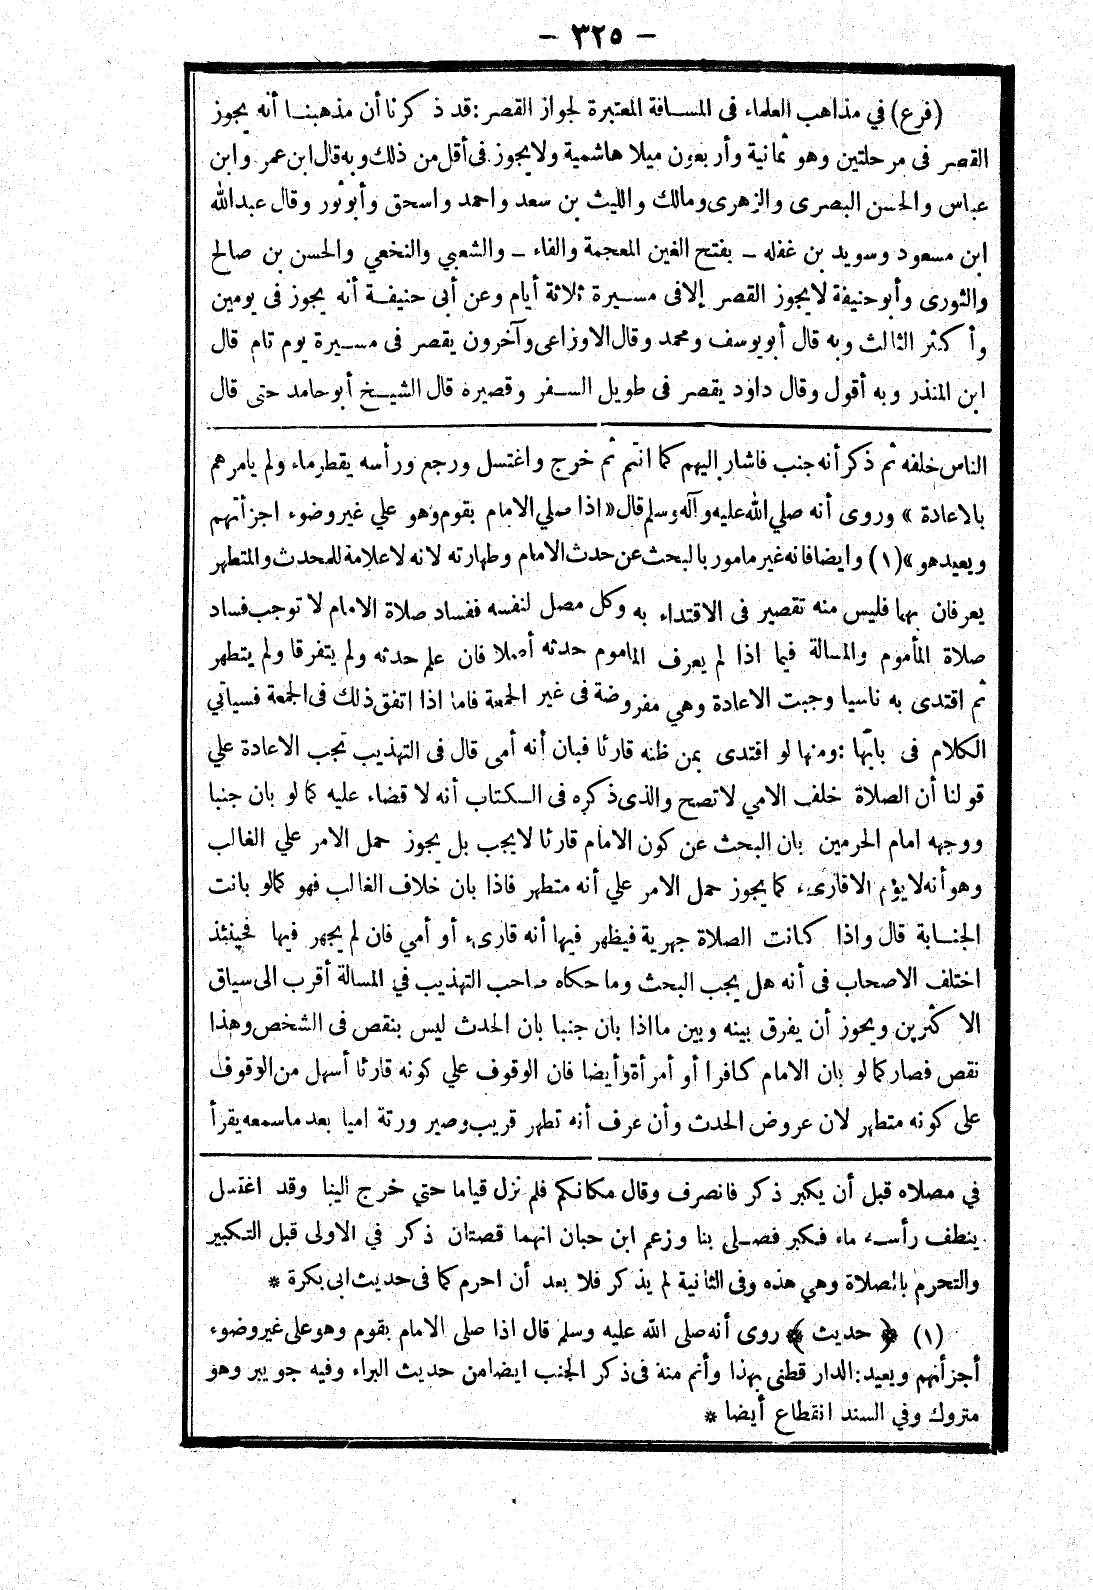 — ٣٢٥ —
(فرع) في مذاهب العلماء فى المسافة المعتبرة لجواز القصر : قد ذكرنا أن مذهبنا أنه يجوز
القصر فى مرحلتين وهو ثمانية وأربعون ميلا هاشمية ولايجوز فى أقل من ذلك وبه قال ابن عمر وابن
عباس والحسن البصرى والزهرى ومالك والليث بن سعد واحمد واسحق وأبو ثور وقال عبدالله
ابن مسعود وسويد بن غفله ـ بفتح الغين المعجمة والفاء ـ والشعبي والنخعي والحسن بن صالح
والثورى وأبو حنيفة لايجوز القصر إلا فى مسيرة ثلاثة أيام وعن أبى حنيفة أنه يجوز فى يومين
وأكثر الثالث وبه قال أبو يوسف ومحمد وقال الاوزاعى وآخرون يقصر فى مسيرة يوم تام قال
ابن المنذر وبه أقول وقال داود يقصر فى طويل السفر وقصيره قال الشيخ أبو حامد حتى قال
الناس خلفه ثم ذكر أنه جنب فاشار إليهم كما انتم ثم خرج واغتسل ورجع ورأسه يقطر ماء ولم يامرهم
بالاعادة » وروى أنه صلي الله عليه وآله وسلم قال « اذا صلي الامام بقوم وهو علي غير وضوء اجزأتهم
ويعيد هو » (١) وايضا فانه غير مامور بالبحث عن حدث الامام وطهارته لانه لا علامة للمحدث والمتطهر
يعرفان بهما فليس منه تقصير فى الاقتداء به وكل مصل لنفسه ففساد صلاة الامام لا توجب فساد
صلاة المأموم والمسالة فيما اذا لم يعرف الماموم حدثه أصلا فان علم حدثه ولم يتفرقا ولم يتطهر
ثم اقتدى به ناسيا وجبت الاعادة وهي مفروضة فى غير الجمعة فاما اذا اتفق ذلك فى الجمعة فسياتي
الكلام فى بابها : ومنها لو اقتدى بمن ظنه قارئا فبان أنه أمى قال فى التهذيب تجب الاعادة علي
قولنا أن الصلاة خلف الامي لا تصح والذى ذكره فى الكتاب أنه لا قضاء عليه كما لو بان جنبا
ووجهه امام الحرمين بان البحث عن كون الامام قارئا لايجب بل يجوز حمل الامر علي الغالب
وهو أنه لا يؤم الا قارىء كما يجوز حمل الامر علي أنه متطهر فاذا بان خلاف الغالب فهو كما لو بانت
الجنابة قال واذا كانت الصلاة جهرية فيظهر فيها أنه قارىء أو أمي فان لم يجهر فيها فحينئذ
اختلف الاصحاب فى أنه هل يجب البحث وما حكاه صاحب التهذيب في المسالة أقرب الى سياق
الاكثرين ويجوز أن يفرق بينه وبين ما اذا بان جنبا بان الحدث ليس بنقص فى الشخص وهذا
نقص فصار كما لو بان الامام كافرا أو أمرأة وأيضا فان الوقوف علي كونه قارئا أسهل من الوقوف
على كونه متطهر لان عروض الحدث وأن عرف أنه تطهر قريب وصيرورتة اميا بعد ما سمعه يقرأ
في مصلاه قبل أن يكبر ذكر فانصرف وقال مكانكم فلم نزل قياما حتي خرج الينا وقد اغتسل
ينطف رأسه ماء فكبر فصلى بنا وزعم ابن حبان انهما قصتان ذكر في الاولى قبل التكبير
والتحرم بالصلاة وهي هذه وفى الثانية لم يذكر فلا بعد أن احرم كما فى حديث ابى بكرة *
(١) ﴿ حديث ﴾ روى أنه صلى الله عليه وسلم قال اذا صلى الامام بقوم وهو على غير وضوء
أجزأنهم ويعيد : الدار قطنى بهذا وأتم منه فى ذكر الجنب ايضا من حديث البراء وفيه جويبر وهو
متروك وفي السند انقطاع أيضا *